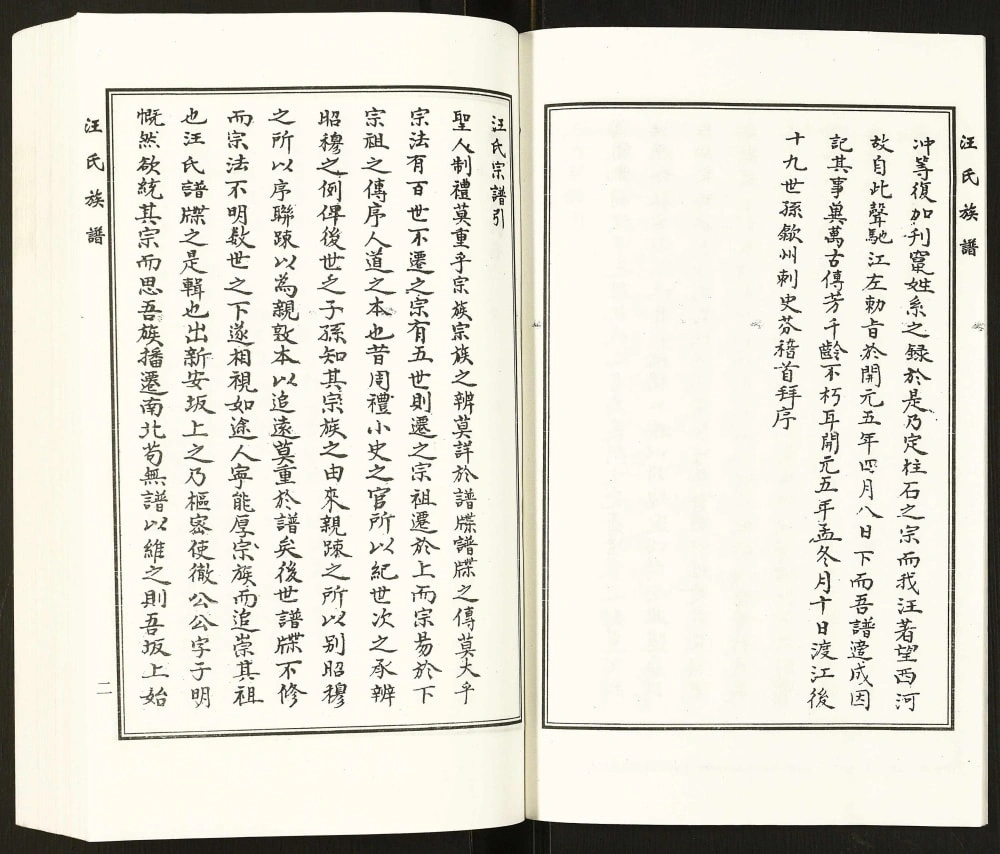 汪氏族譜
冲等復加刋竄姓系之録於是乃定柱石之宗而我汪著望西河
故自此聲馳江左勅旨於開元五年四月八日下而吾譜遂成因
記其事冀萬古傳芳千齡不朽耳開元五年孟冬月十日渡江後
十九世孫歙州刺史芬稽首拜序
汪氏宗譜引
聖人制禮莫重乎宗族宗族之辨莫詳於譜牒譜牒之傳莫大乎
宗法有百世不遷之宗有五世則遷之宗祖遷於上而宗易於下
宗祖之傳序人道之本也昔周禮小史之官所以紀世次之承辨
昭穆之例俾後世之子孫知其宗族之由來親踈之所以别昭穆
之所以序聯踈以為親敦本以追遠莫重於譜矣後世譜牒不修
而宗法不明数世之下遂相視如途人寧能厚宗族而追崇其祖
也汪氏譜牒之是輯也出新安坂上之乃樞宻使徹公公字子明
慨然欲統其宗而思吾族播遷南北苟無譜以維之則吾坂上始
汪氏族譜
二